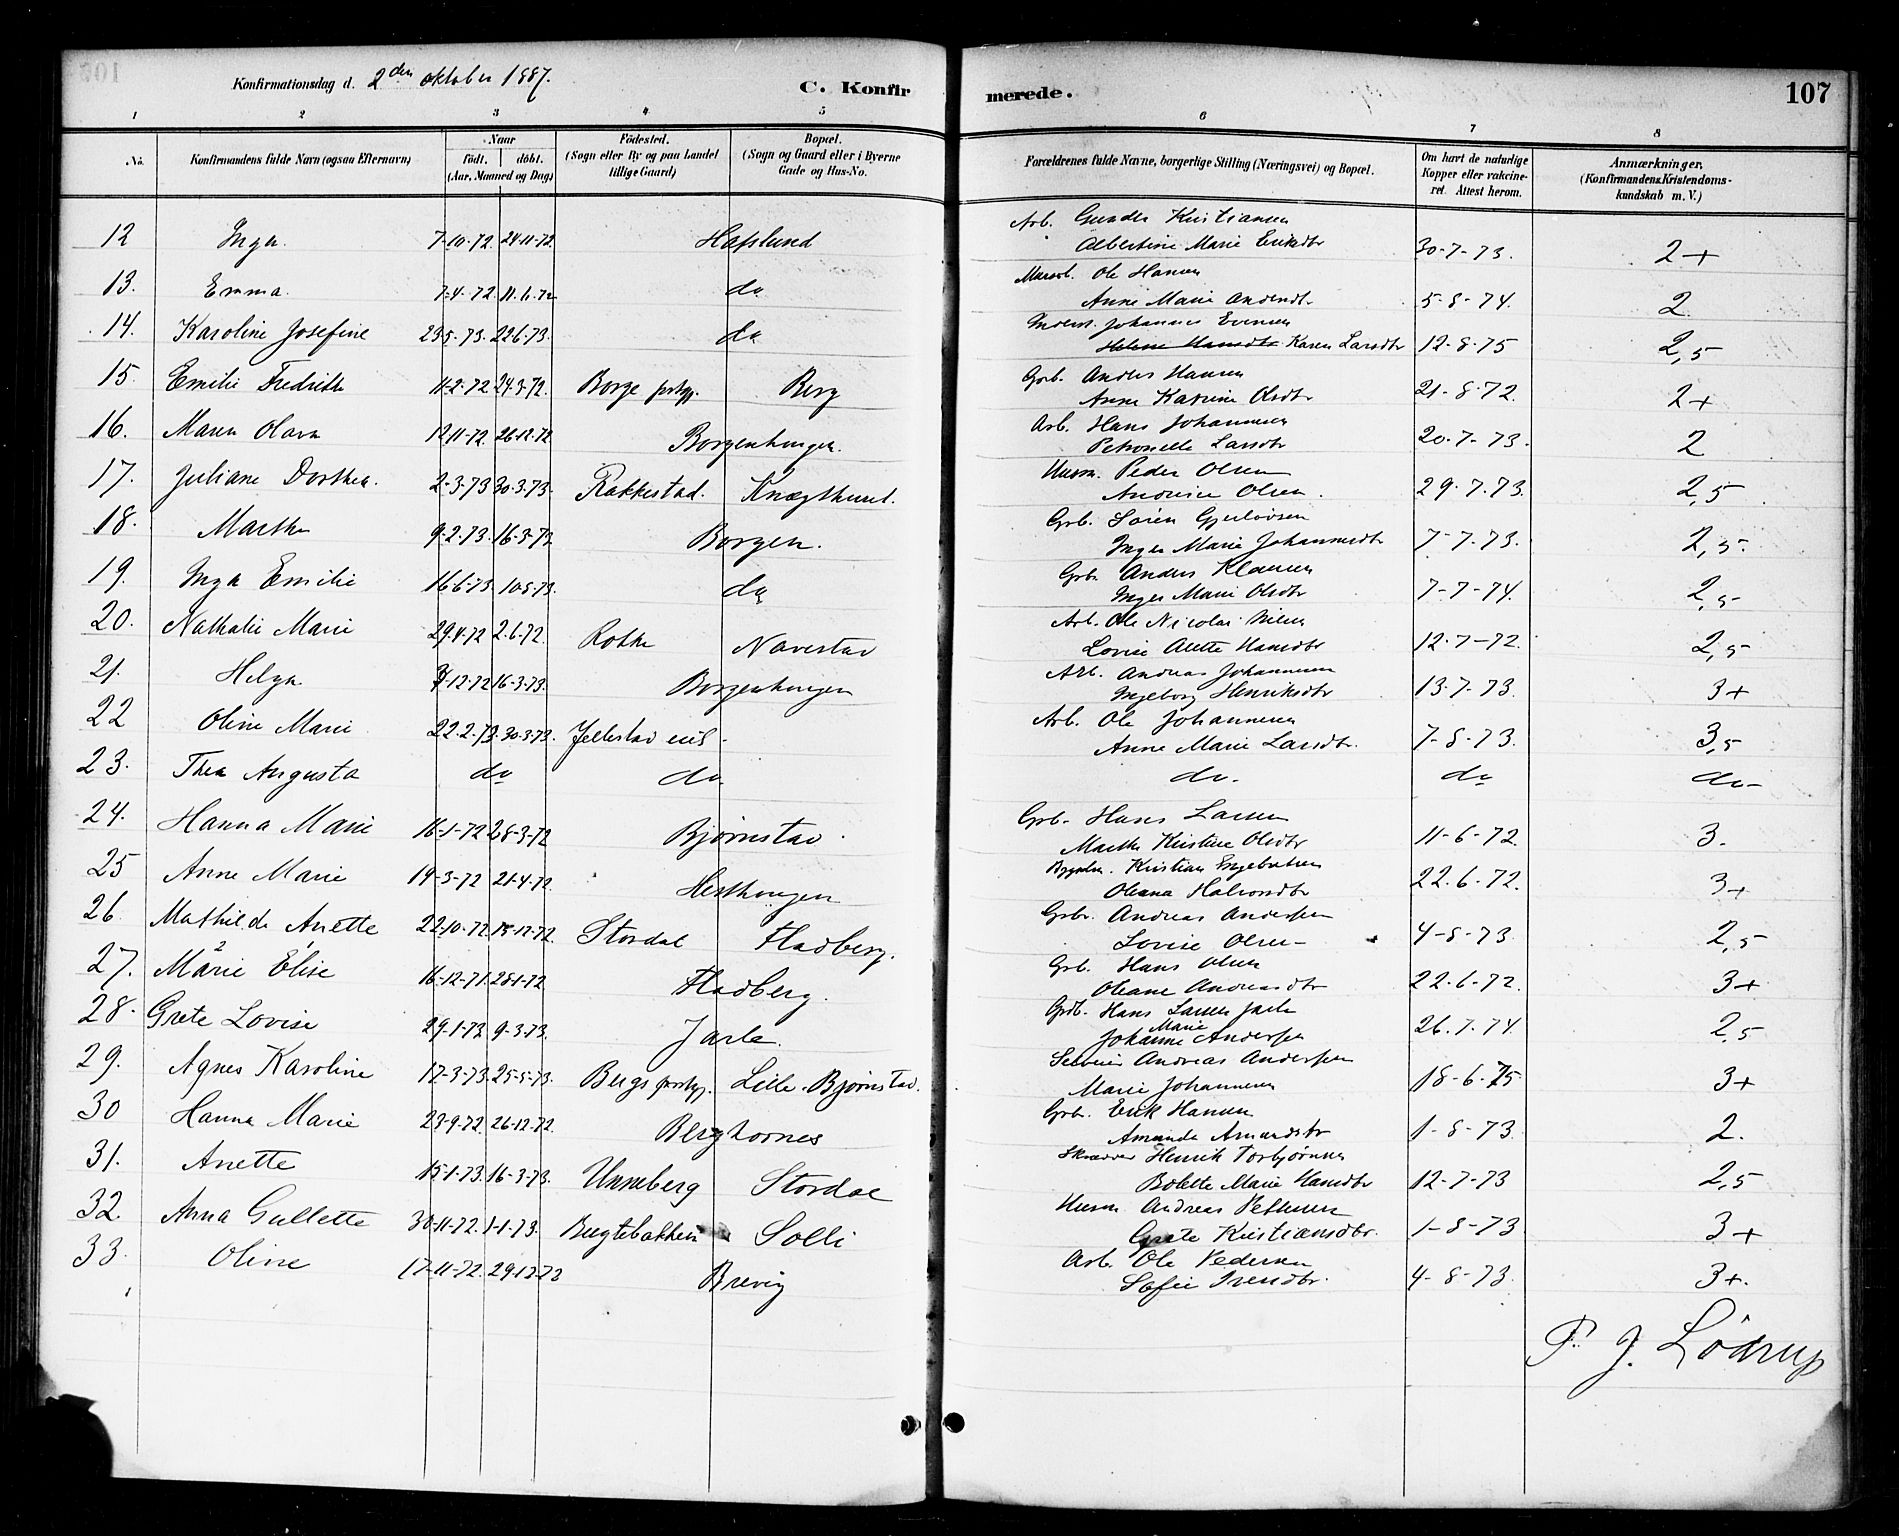 Konfirmationsdag d. 2den oktober 1887.
C. Konfirmerede. 107
1 2 3 4 5 6 7 8
No. Konfirmandens fulde Navn (ogsaa Efternavn) Naar født. døbt. (Aar, Maaned og Dag) Fødested. (Sogn eller By og paa Landet tillige Gaard) Bopæl. (Sogn og Gaard eller i Byerne Gade og Hus-No. Forældrenes fulde Navne, borgerlige Stilling (Næringsvei) og Bopæl. Om havt de naturlige Kopper eller vakcineret. Attest herom. Anmærkninger, (Konfirmandens Kristendomskundskab m. V.)
Arb. Gunder Kristiansen
12 Inga 7-10-72 24-11-72 Hafslund Albertine Marie Eriksdtr 30-7-73. 2+
Ole Hansen
13. Emma. 7-4-72. 11.6.72 do Anne Marie 5-8-74. 2
Johannes Evensen
14. Karoline Josefine 23-5-73. 22.6.73. do Helene Hansdtr Karen Larsdtr 12-8-75 2,5
Grb. Anders Hansen
15. Emilie Fredrikke 11-2-72 24.3.72. Borge prstgj. Berg Anne Katrine Olsdtr 21-8-72. 2+
Arb. Hans Johannesen
16. Maren Olava 12-11-72 26-12-72 Borgenhaugen. Petronelle Larsdtr 20-7-73. 2
Husm. Peder Olsen
17. Juliane Dorthea. 2-3-73 30-3-73. Rakkestad. Andrine Olsen. 29-7-73. 2,5
Grb. Søren Gjerløvsen
18. Marthe 9-2-73. 16-3-73. Borgen. Inger Marie Johannesdtr 7-7-73. 2,5.
Grb. Anders Klausen
19. Inga Emilie 16.6.73. 10.8.73. do Inger Marie Olsdtr 7-7-74. 2,5
Arb. Ole Nicolai Nilsen
20. Nathalie Marie 29.4.72 2.6.72. Rokke Navestad Lovise Alette Hansdtr 12-7-72. 2,5
Arb. Andreas Johannesen
21. Helga 9-12-72 16-3-73. Borgenhaugen Ingeborg Henriksdtr 13-7-73. 3+
Arb. Ole Johannesen
22 Oline Marie 22-2-73. 30-3-73. Jellestad eie Anne Marie Larsdtr. 7-8-73. 3,5
23. Thea Augusta do do do. do do
Grb. Hans Larsen
24. Hanna Marie 16-1-72 28-3-72 Bjørnstad. Marthe Kristine Olsdtr 11-6-72. 3.
Kristian Engebretsen
25 Anne Marie 19-3-72 21-4-72. Hesthaugen Oleana Halvorsdtr 22.6-72. 3+
Grbr. Andreas Andersen
26. Mathilde Anette 22-10-72. 15-12-72. Stordal Hadberg. Lovise Olsen 4-8-73. 2,5
Grb. Hans Olsen
27. Marie Elise 16-12-71 28-1-72 Hadberg. Oleane Andreasdtr 22.6-72. 3+
Grdb. Hans Larsen Jarle
28. Grete Lovise 29-1-73. 9-3-73. Jarle. Johanne Marie Andersen 26.7.74. 2,5
Andreas Andersen
29. Agnes Karoline 17-3-73. 25-5-73. Bergs prstgj. Lille-Bjørnstad. Marie Johannesen 18-6-75 3+
Grb. Erik Hansen
30 Hanna Marie 23-9-72. 26-12-72. Berghornes Amanda Amundsdtr 1-8-73. 2.
Skrædder Henrik Torbjørnsen
31. Anette 15-1-73. 16-3-73. Unneberg Stordal Bolette Marie Hansdtr 12-7-73 2,5
Husm. Andreas Pettersen
32. Anna Gullette 30-11-72. 1-1-73. Bugtebakken Solli Grete Kristiansdtr. 1-8-73 3+
Arb. Ole Pedersen
33. Oline 17-11-72. 29-12-72 Brevig Sofie Svendsdtr. 4-8-73. 3+.
P. J. Lødrup